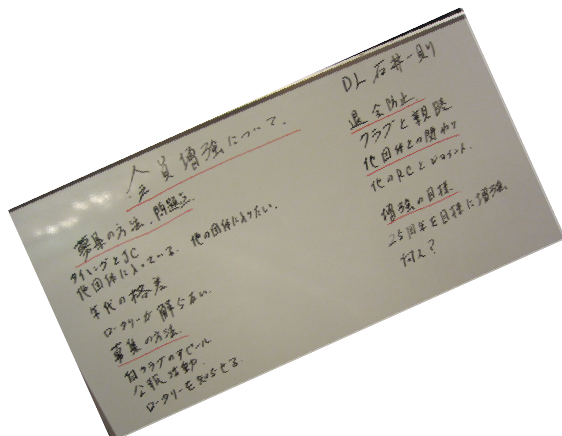 会員増強について
募集の方法、問題点
タイミングとJC
他団体に入っている。他の団体に入りたい。
年代の格差
ロータリーが解らない。
募集の方法
自クラブのアピール
公報活動
ロータリーを知らせる
DL 石井一則
退会防止
クラブと親睦
他団体との関わり
他のRCとジョイント.
増強の目標
25周年を目標に増強
何人?